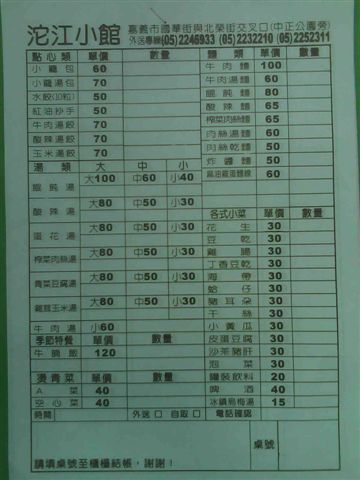 沱江小館
嘉義市國華街與北榮街交叉口(中正公園旁)
外送專線(05)2245933 (05)2232210 (05)2252311
點心類 單價 數量
小籠包 60
小籠湯包 70
水餃(10粒) 50
紅油抄手 50
牛肉湯餃 70
酸辣湯餃 70
玉米湯餃 70
湯類 大 中 小
餛飩湯 大100 中60 小40
酸辣湯 大80 中50 小30
蛋花湯 大80 中50 小30
榨菜肉絲湯 大80 中50 小30
青菜豆腐湯 大80 中50 小30
雞茸玉米湯 大80 中50 小30
牛肉湯 小60
季節特餐 單價 數量
牛腩飯 120
燙青菜 單價 數量
A菜 40
空心菜 40
麵類 單價 數量
牛肉麵 100
牛肉湯麵 60
餛飩麵 80
酸辣麵 65
榨菜肉絲麵 65
肉絲湯麵 60
肉絲乾麵 50
炸醬麵 50
麻油雞蛋麵線 60
各式小菜 單價 數量
花生 30
豆乾 30
雞腸 30
丁香豆乾 30
海帶 30
蛤仔 30
豬耳朵 30
干絲 30
小黃瓜 30
皮蛋豆腐 30
沙茶豬肝 30
泡菜 30
罐裝飲料 20
啤酒 40
冰鎮烏梅湯 15
時間 外送□ 自取□ 電話確認
桌號
請填桌號至櫃檯結帳，謝謝！